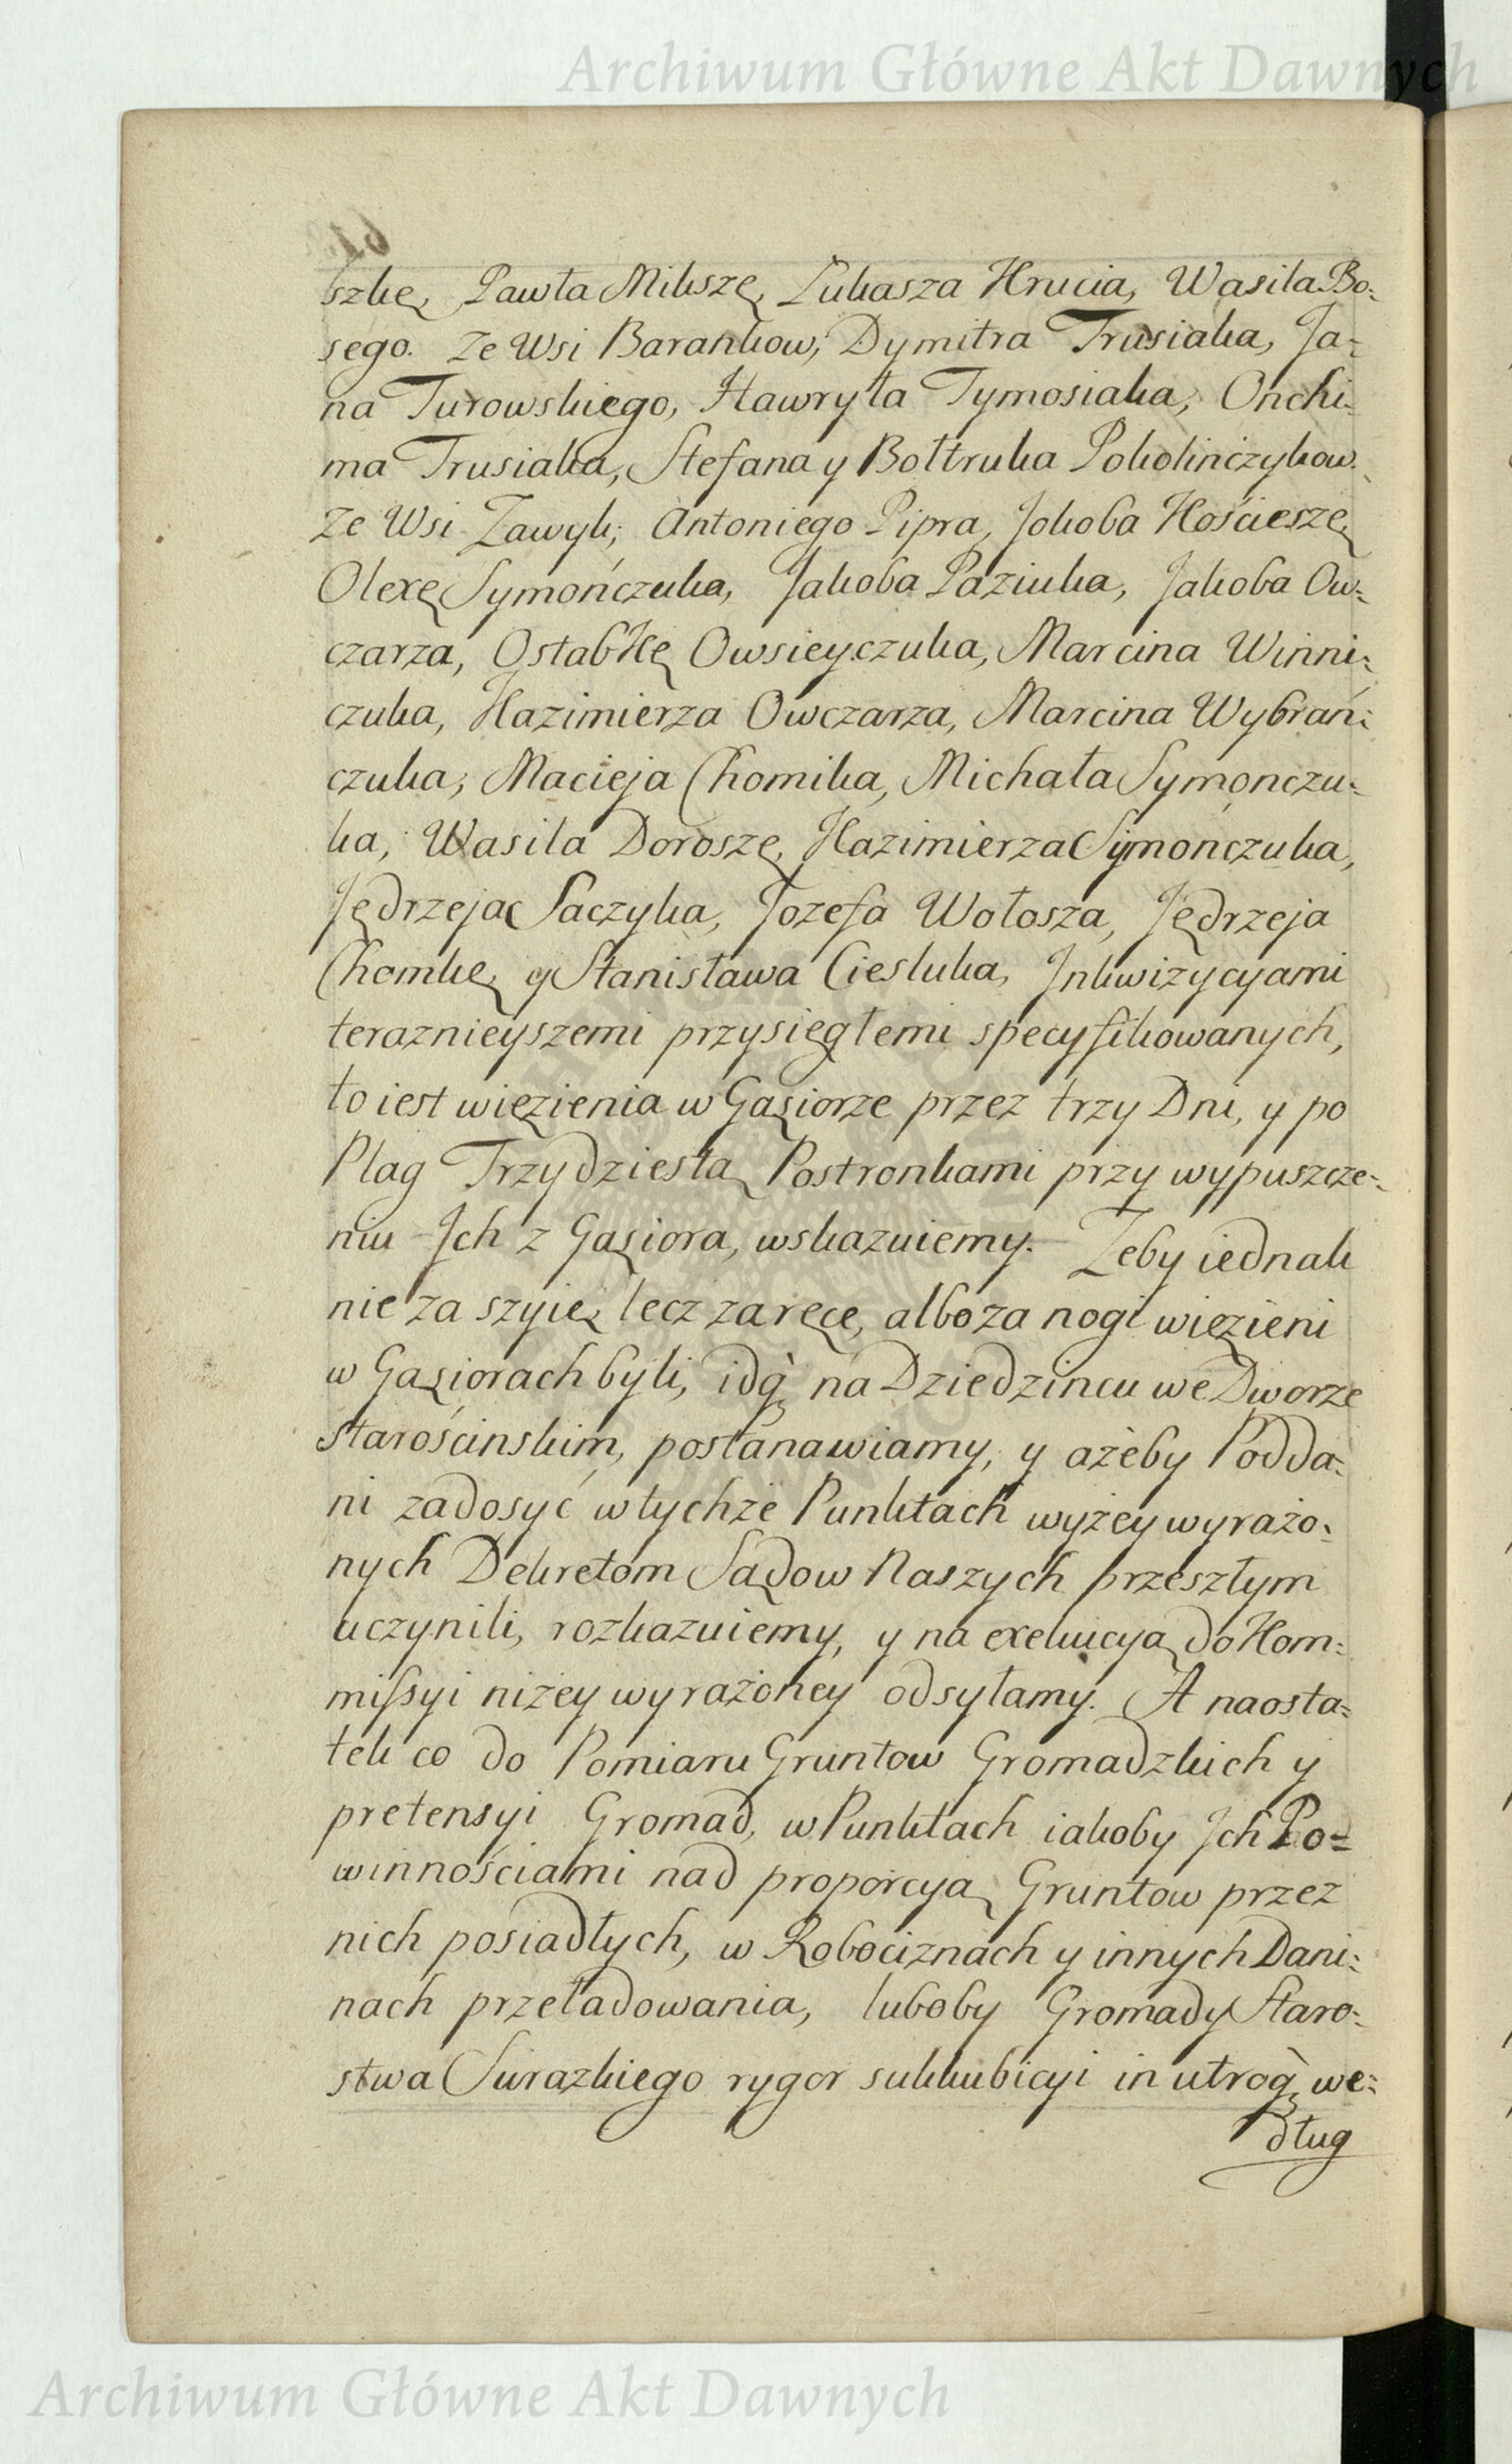 Archiwum Główne Akt Dawnych
szkę, Pawła Mikszę, Łukasza Hrucia, Wasila Bo=
sego. Ze Wsi Barankow, Dymitra Trusiaka, Ja=
na Turowskiego, Hawryła Tymosiaka, Onchi=
ma Trusiaka, Stefana y Bołtruka Pokolinczykow.
Ze Wsi Zawyk; Antoniego Pipra, Jokoba Kościeszę,
Olexę Symończuka, Jakoba Paziuka, Jakoba Ow=
czarza, Ostabkę Owsieyczuka, Marcina Winni=
czuka, Kazimierza Owczarza, Marcina Wybrań=
czuka, Macieja Chomika, Michała Symonczu=
ka, Wasila Doroszę, Kazimierza Symończuka,
Jędrzeja Saczyka, Jozefa Wołosza, Jędrzeja
Chomkę, y Stanisława Ciesluka, Inkwizycyami
teraznieyszemi przysięgłemi specyfikowanych,
to iest więzienia w Gąsiorze przez trzy Dni, y po
Plag Trzydziestą Postronkami przy wypuszcze=
niu Jch z Gąsiora, wskazuiemy. Żeby iednak
nie za szyię, lecz za ręce, albo za nogi więzieni
w Gąsiorach byli, idq̀ na Dziedzincu we Dworze
Starościnskim, postanawiamy, y ażeby Podda=
ni zadosyć w tychże Punktach wyżey wyrażo=
nych Dekretom Sądow Naszych przeszłym
uczynili, rozkazuiemy, y na exekucyą do Kom=
missyi niżey wyrażoney odsyłamy. A naosta=
tek co do Pomiaru Gruntow Gromadzkich y
pretensyi Gromad, w Punktach iakoby Jch Po=
winnościami nad proporcyą Gruntow przez
nich posiadłych, w Robociznach y innych Dani=
nach przeładowania, luboby Gromady Staro=
stwa Surazkiego rygor sukkubicyi in utroq̀ we=
dług
Archiwum Główne Akt Dawnych